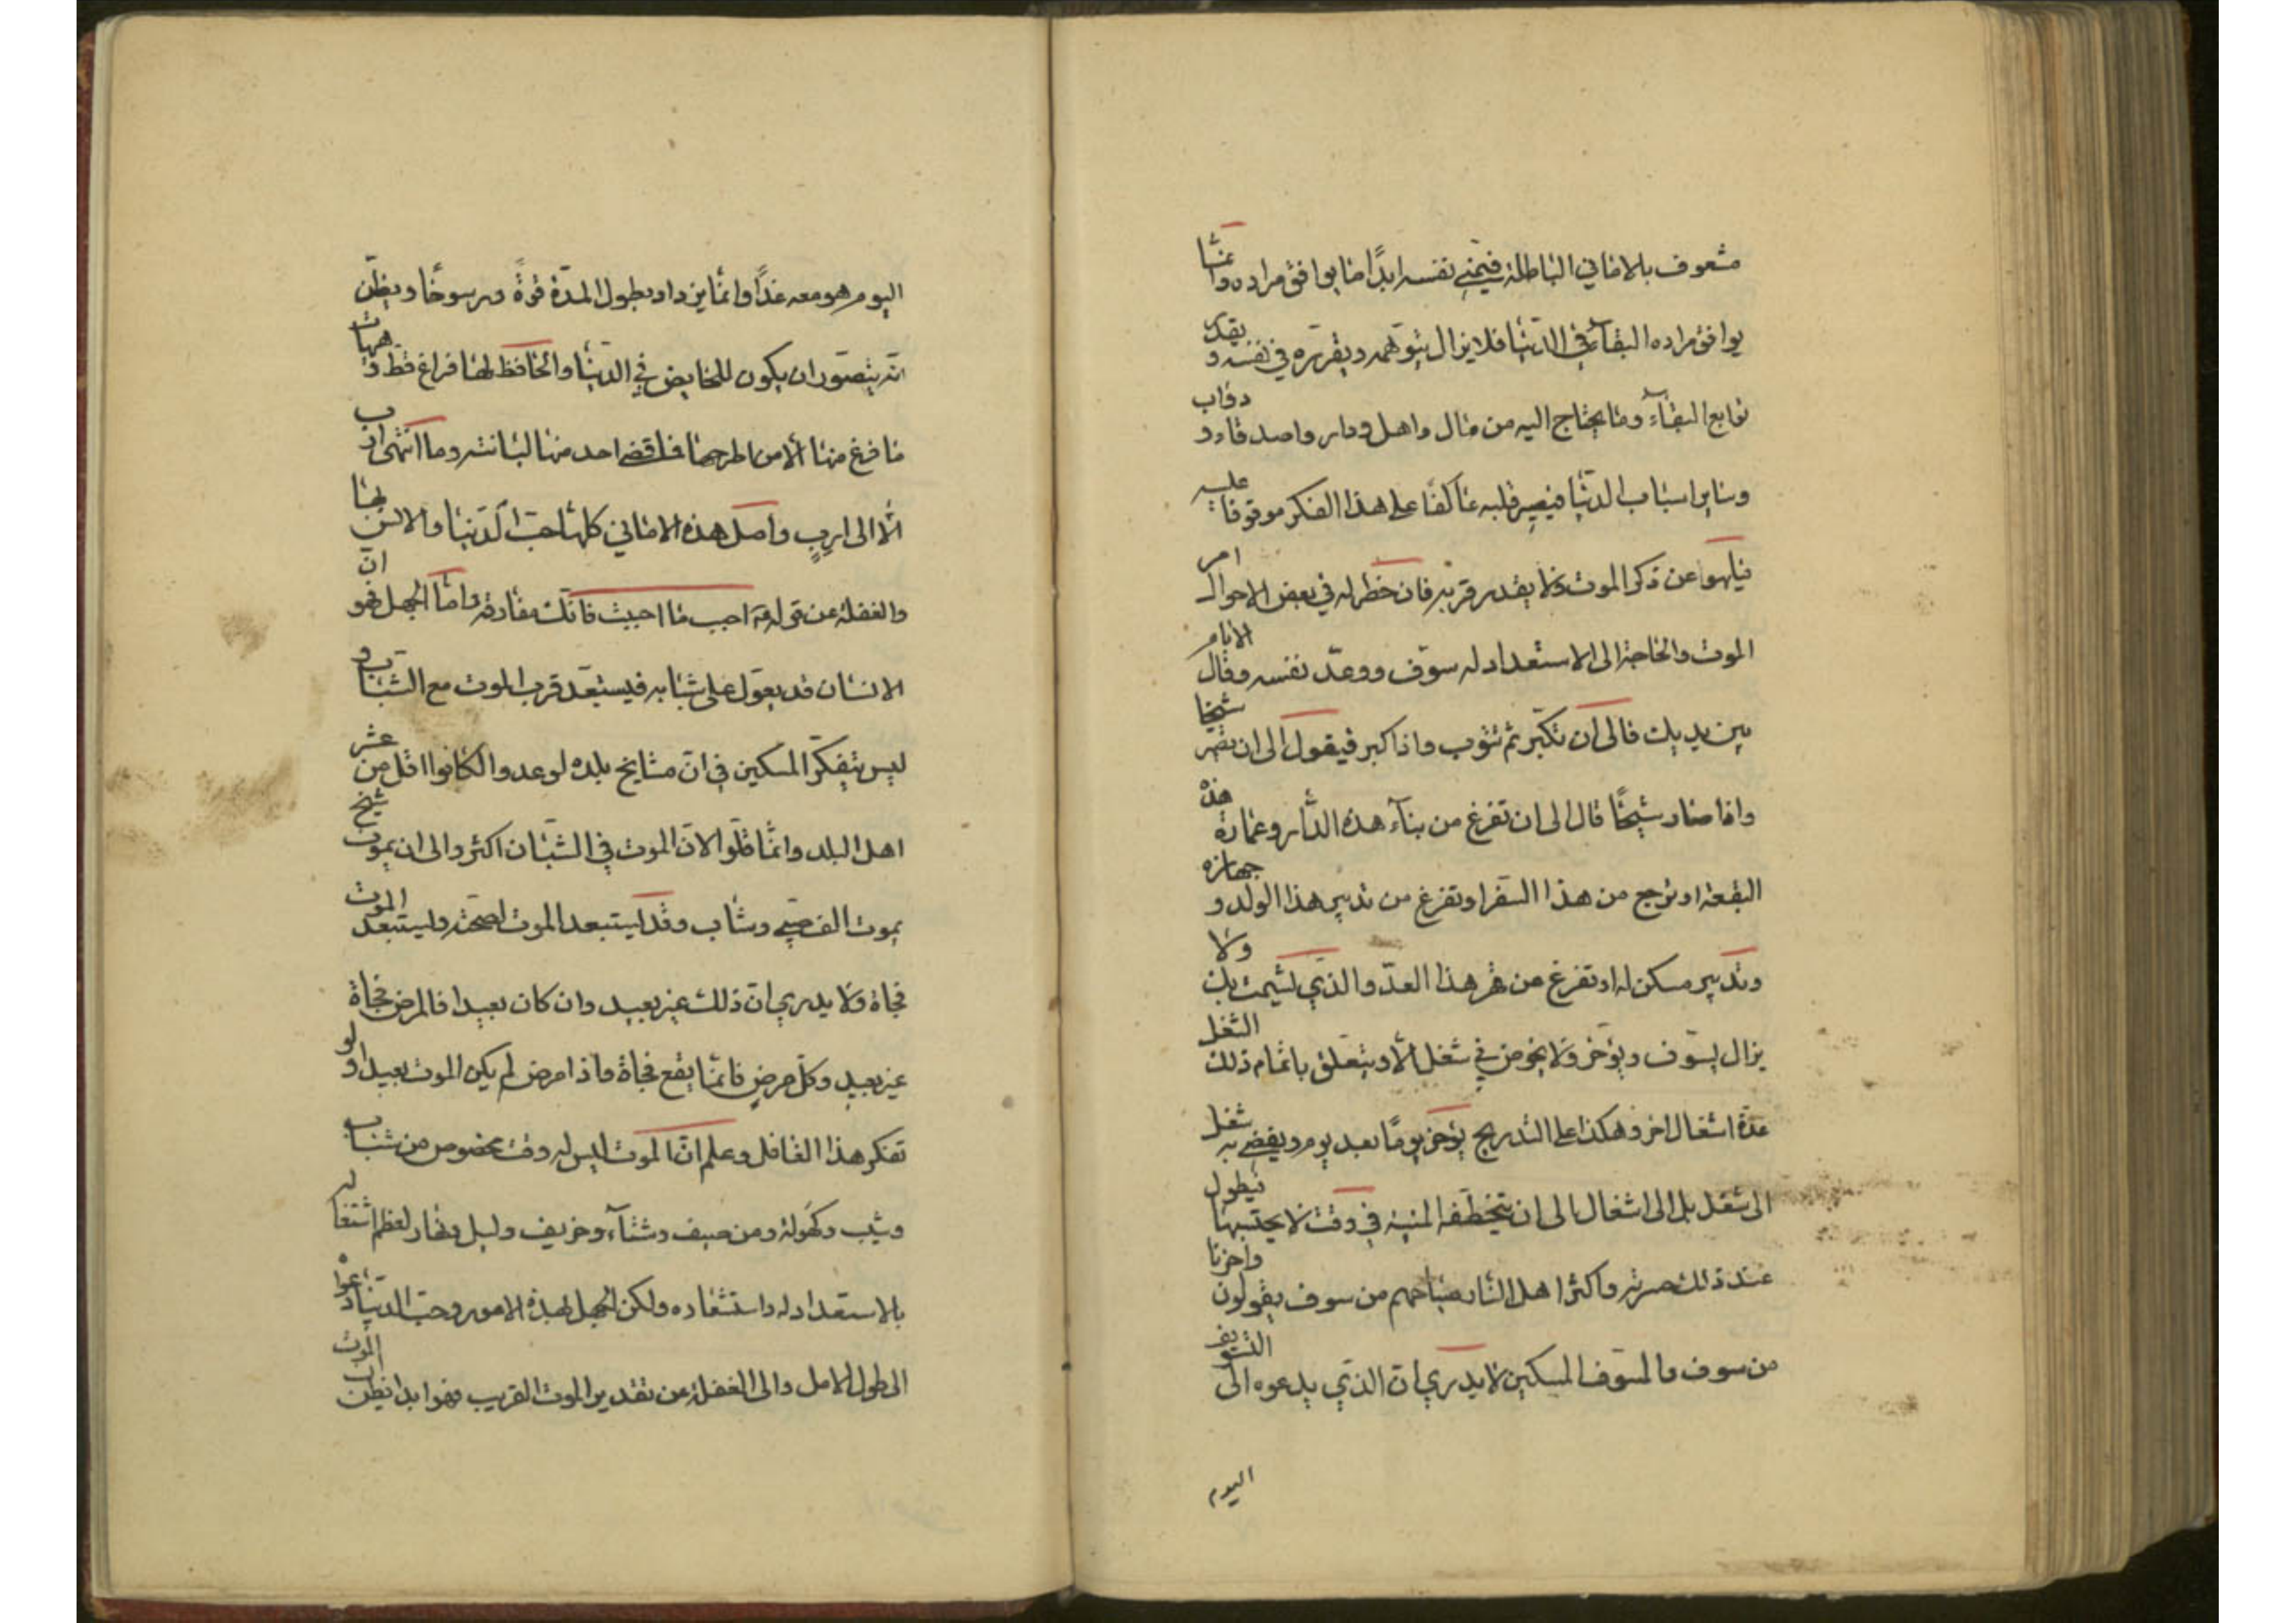 مشعوف بالاماني الباطلة فيمني نفسه ابدًا بما يوافق مراده وانما
يوافق مراده البقاء في الدنيا فلا يزال يتوهمه ويقرره في نفسه ويقدر
توابع البقاء وما يحتاج اليه من مال واهل ودار واصدقاء ودواب
وساير اسباب الدنيا فيصير قلبه عاكفًا على هذا الفكر موقوفا عليه
فيلهوا عن ذكر الموت فلا يقدر قربه فان خطر له في بعض الاحوال امر
الموت والحاجة الى الاستعداد له سوّف ووعد نفسه وقال الايام
بين يديك فالى ان تكبر ثم تتوب واذا كبر فيقول الى ان تصير شيخا
واذا صار شيخًا قال الى ان تفرغ من بناء هذه الدار وعمارة هذه
البقعة او ترجع من هذا السفر او تفرغ من تدبير هذا الولد وجهازه
وتدبير مسكن له او تفرغ من قهر هذا العدو الذي يشمت بك ولا
يزال يسوّف ويؤخر ولا يخوض في شغل الا ويتعلق باتمام ذلك الشغل
عدة اشغال اخر وهكذا على التدريج يؤخر يومًا بعد يوم ويفضي به شغل
الى شغل بل الى اشغال الى ان تخطفه المنية في وقت لا يحتسبها فيطول
عند ذلك حسرته واكثر اهل النار صياحهم من سوف يقولون واحزنا
من سوف والمسوّف المسكين لا يدري ان الذي يدعوه الى التسويف
اليوم
اليوم هو معه غدًا وانما يزداد بطول المدة قوةً ورسوخًا ويظن
انه يتصور ان يكون للخايض في الدنيا والحافظ لها فراغ قط وهيهات
ما فرغ منها الا من اطرحها فما قضى احد منها لبانته وما انتهى ارب
الا الى اربٍ واصل هذه الاماني كلها حب الدنيا والانس بها
والغفلة عن قوله احبب ما احببت فانك مفارقه واما الجهل فهو ان
الانسان قد يعول على شبابه فيستبعد قرب الموت مع الشباب و
ليس يتفكر المسكين في ان مشايخ بلده لو عدوا لكانوا اقل من عشر
اهل البلد وانما قلوا لان الموت في الشبان اكثر والى ان يموت شيخ
يموت الف صبي وشاب وقد يستبعد الموت لصحته وليستبعد الموت
فجاة ولا يدري ان ذلك غير بعيد وان كان بعيدا فالمرض فجاة
غير بعيد وكل مرض فانما يقع فجاة واذا مرض لم يكن الموت بعيدا ولو
تفكر هذا الغافل وعلم ان الموت ليس له وقت مخصوص من شباب
وشيب وكهولة ومن صيف وشتاء وخريف وليل ونهار لعظم اشتغاله
بالاستعداد له واستشعاره ولكن الجهل بهذه الامور وحب الدنيا دعواه
الى طول الامل والى الغفلة عن تقدير الموت القريب فهو ابدا يظن ان الموت